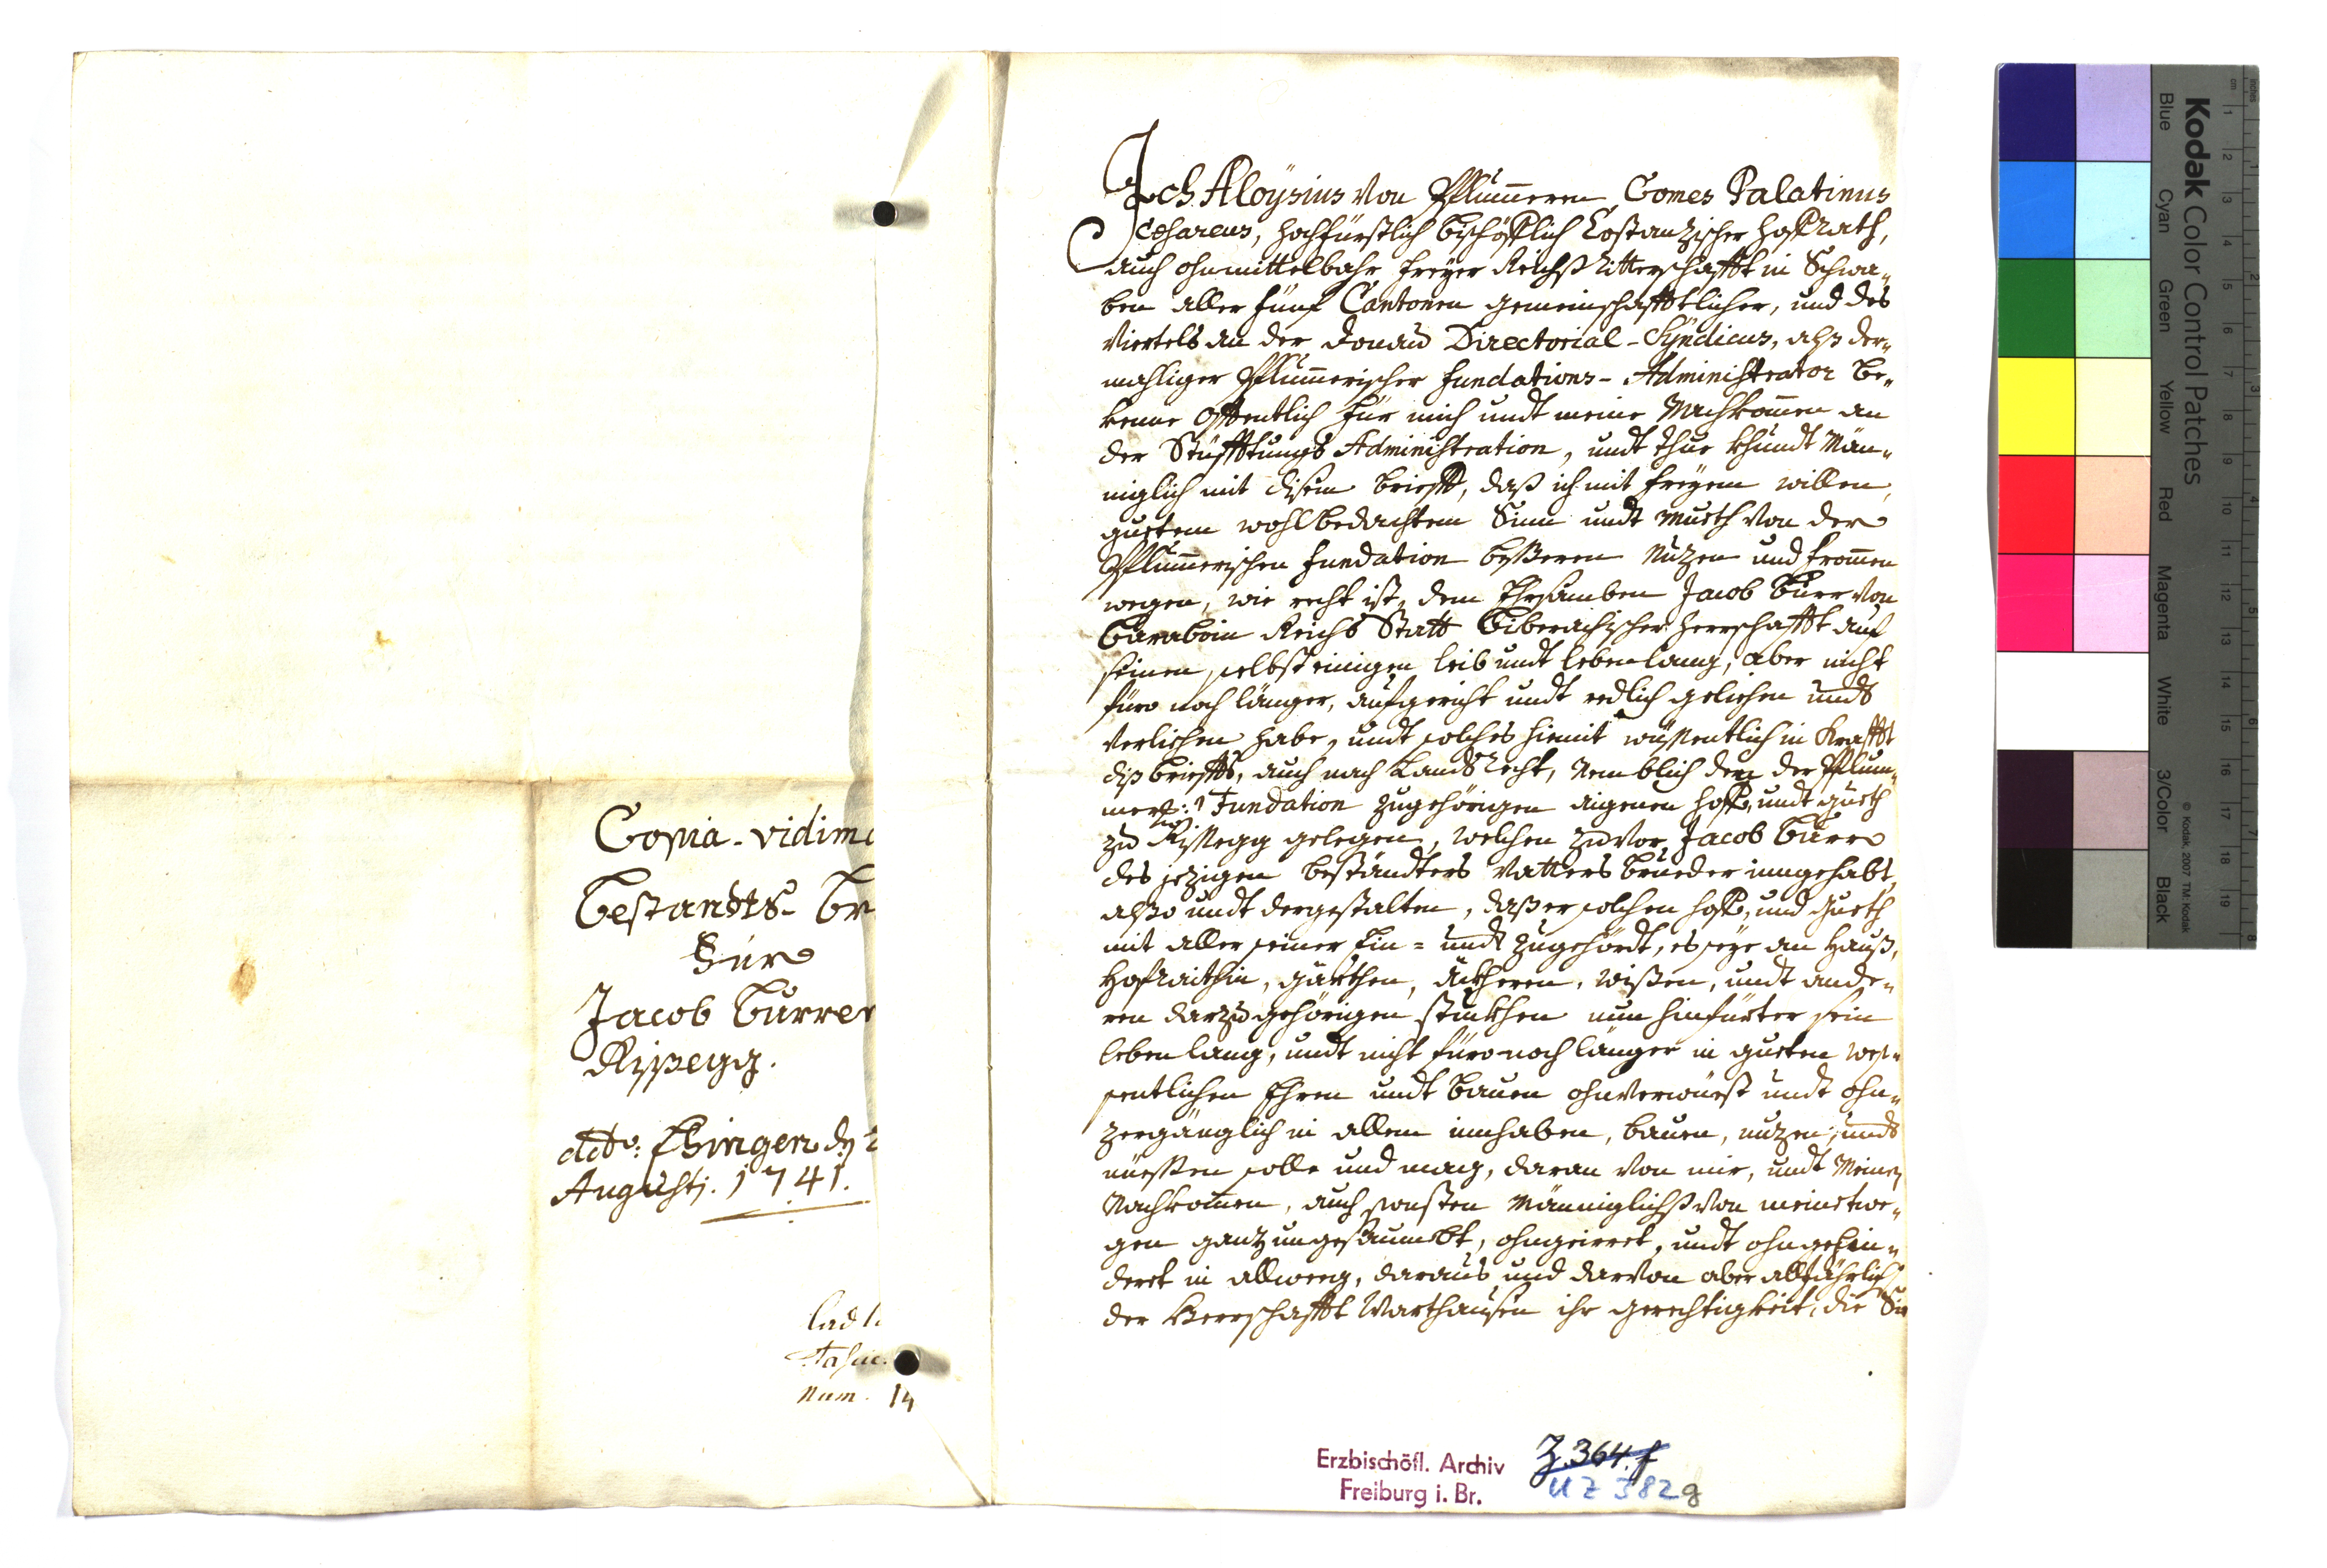 Copia-vidim
Bestandts- Br
Für
Jacob Burrer
Rissegg.
ddto: Ehingen dn 2
Augusti. 1741.
Lad
num. 14
Ich Aloÿsius von Pflummern Comes Palatinus
Cæsareus, hochfürstlich bischöfflich Costantzischer hoffRath,
auch ohnmittelbahr freÿer ReichsRitterschafft in Schwa„
ben aller fünf Cantonen gemeinschafftlicher, und des
Viertels an der Donau Directorial-Sÿndicus, alß der„
mahliger Pflummerischer fundations-Administrator be„
kenne offentlich für mich undt meine Nachkommen an
der Stüfftungs Administration, undt thue khundt Män„
niglich mit disem brieff, daß ich mit freÿem willen,
guetem wohlbedachtem Sinn undt mueth von der
Pflummerischen fundation besseren Nutzen und frommen
wegen, wie recht ist, dem Ehrsamben Jacob Burr von
Buraboin Reichs Statt Biberachischer herrschafft auf
seinen selbst einigen leib undt lebenlang, aber nicht
füro noch länger, aufgericht undt redlich gelichen undt
verlichen habe, undt solches hiemit wüssentlich in Krafft
diß brieffs, auch nach LandtsRecht, Nemblich den der Pflum„
mer: Fundation zugehörigen aigenen hoff, undt gueth
zu Rissegg gelegen, welchen zuvor Jacob Burr
des jezigen beständters Vatters brueder inngehabt,
also undt dergestalten, daß er solchen hoff, und gueth
mit aller seiner Ein= undt Zugehördt, es seÿe an Hauß,
Hofraithin, gärthen, äckheren, wißen, undt ande„
ren darzu gehörigen stuckhen nun hinfürter sein
leben lang, undt nicht füro noch länger in gueten wes„
sentlichen Ehren undt bauen ohnverwüest undt ohn„
zergänglich in allem innhaben, bauen, nutzen, undt
nüessen solle und mag, daran von mir, undt Meinen
Nachkommen, auch sonsten Männiglichs von meinetwe„
gen gantz ungesaumbt, ohngeirret, undt ohngehin„
dert in allweeg, daraus und darvon aber alljährlich
der Herrschafft Warthausen ihr gerechtigkeit, die
Erzbischöfl. Archiv
Freiburg i. Br.
Z. 364. f
UZ 382g
Kodak Color Control Patches
Blue Cyan Green Yellow Red Magenta White 3/Color Black
© Kodak, 2007 TM: Kodak
inches
cm
1 2 3 4 5 6 7 8 9 10 11 12 13 14 15 16 17 18 19
1 2 3 4 5 6 7 8